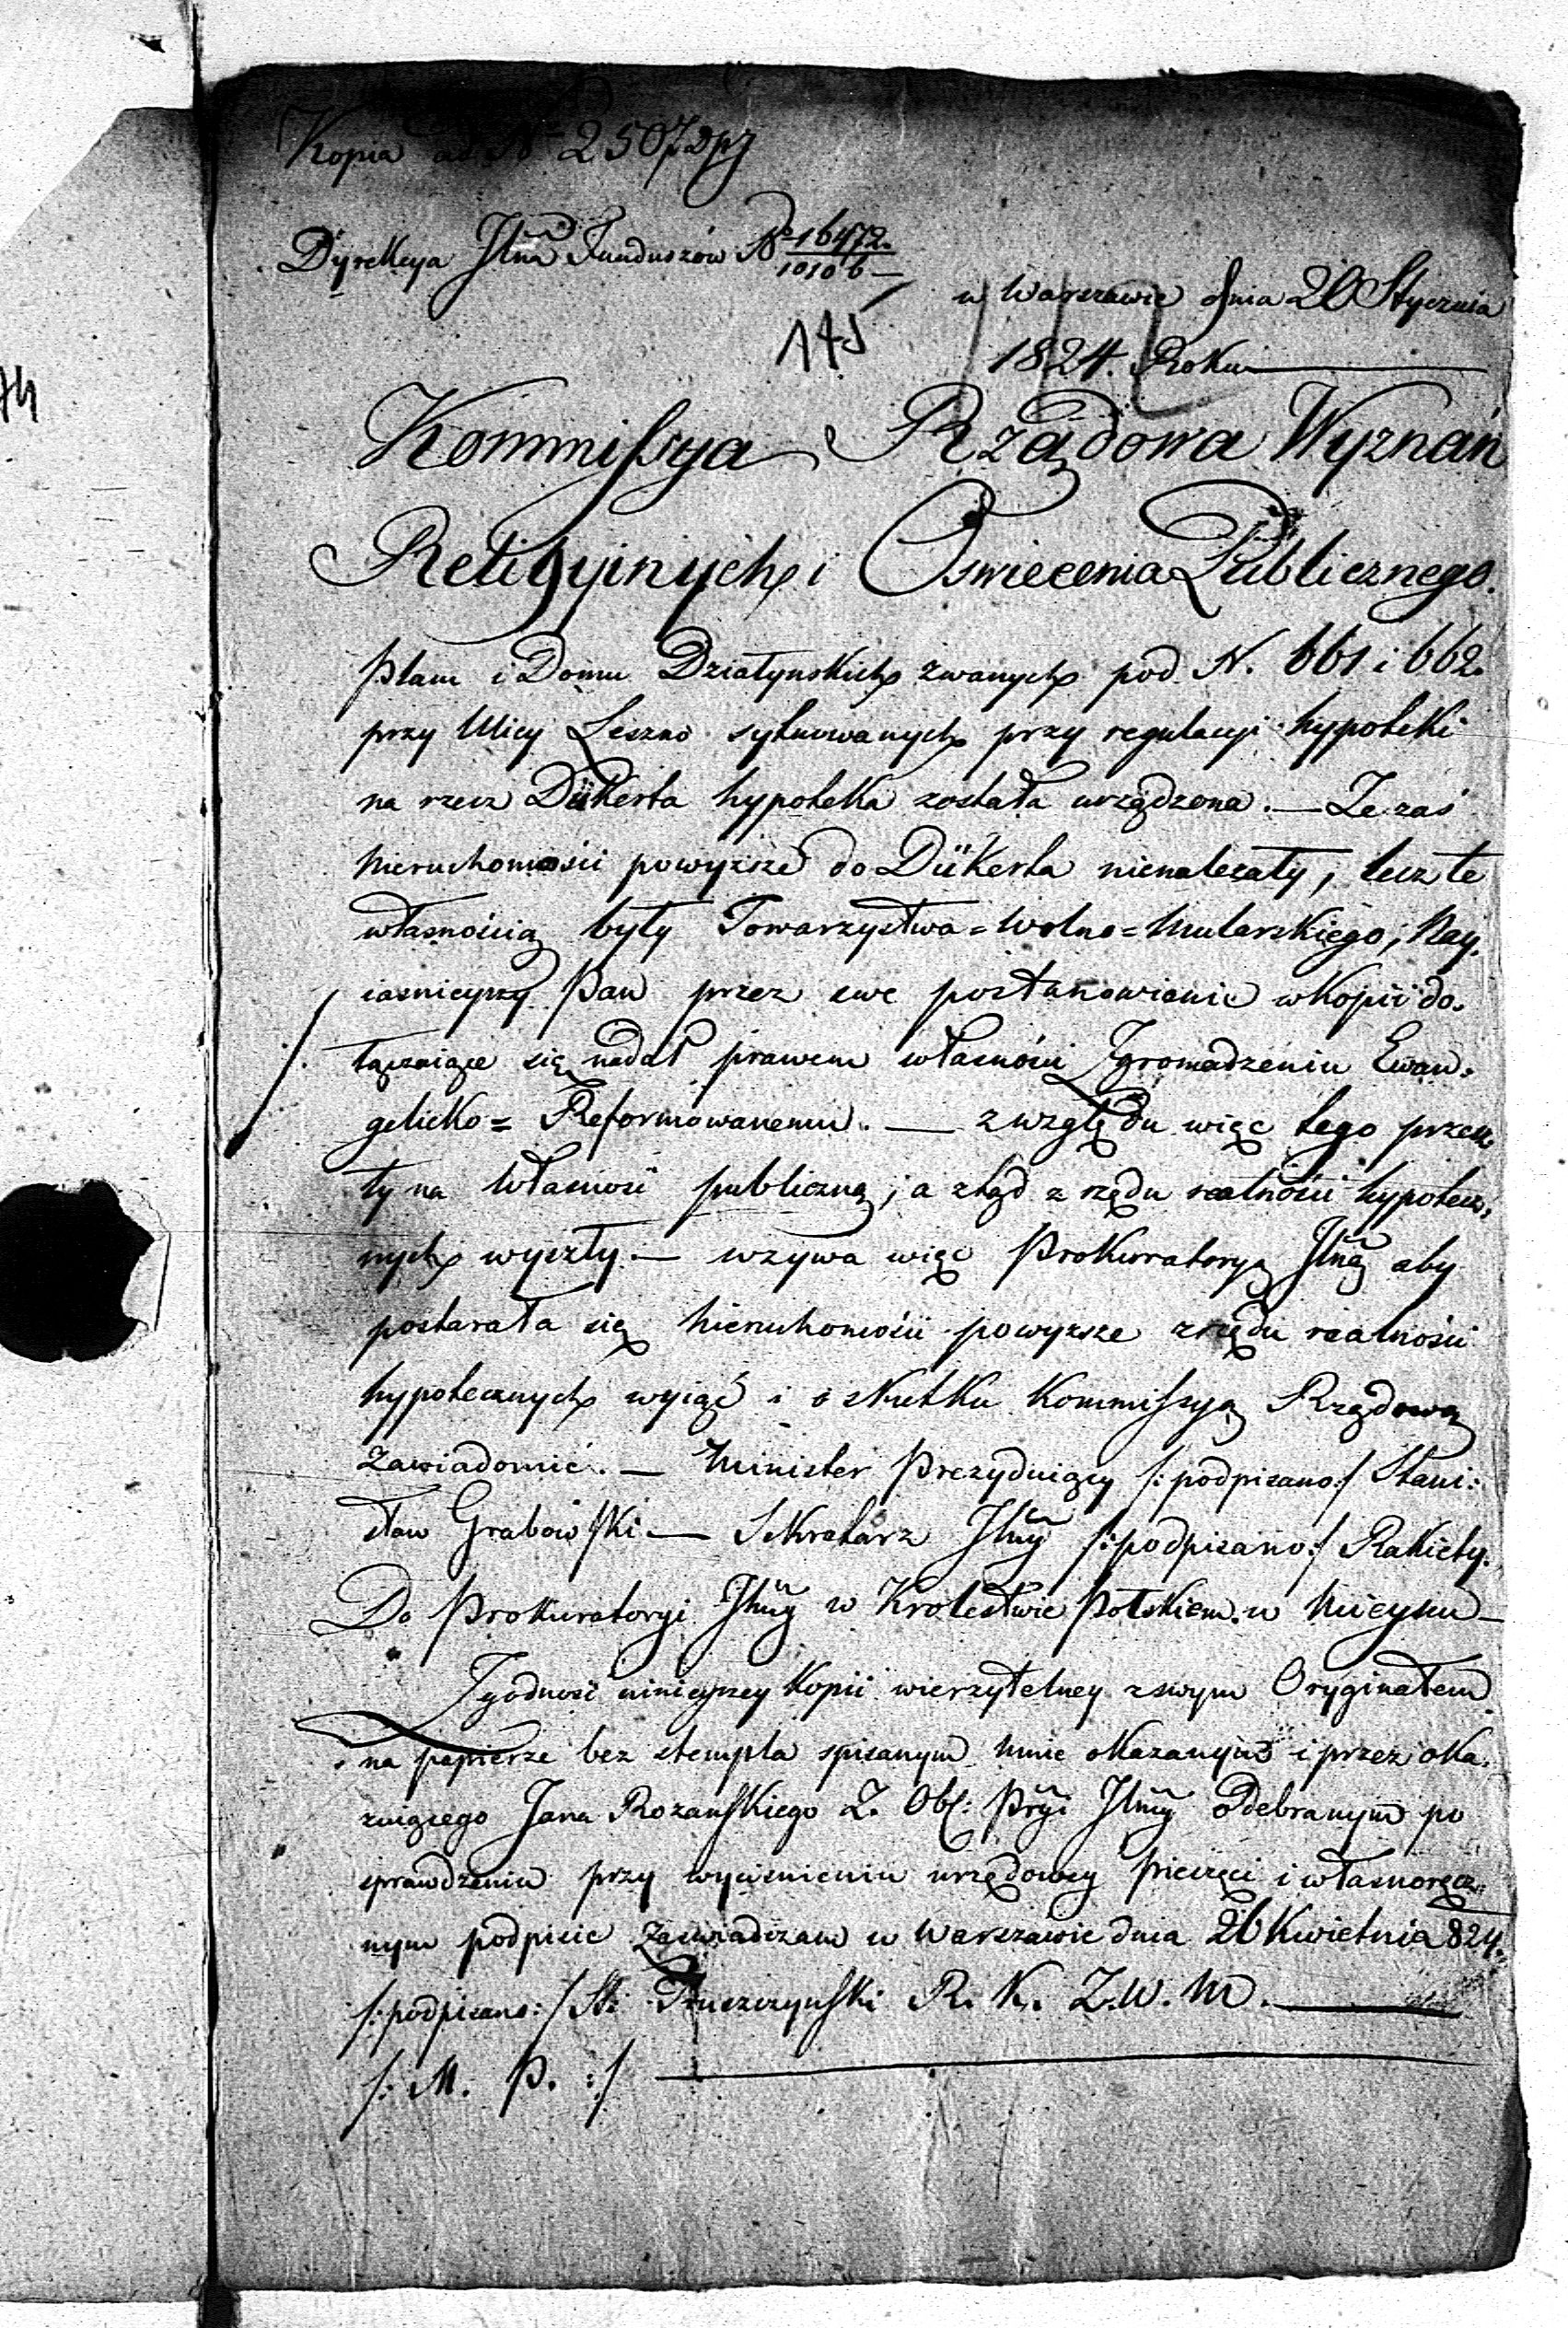 Kopia ad Nº 2507 Dpz
Dyrekcya Jlna Funduszów Nº 16472.
10106
w Warszawie dnia 20 Stycznia
145
1824. Roku
74
Kommissya Rządowa Wyznań
Religyinych i Oswiecenia Publicznego.
Placu i Domu Działynskich zwanych pod N. 661 i 662.
przy Ulicy Leszno sytuowanych przy regulacyi hypoteki
na rzecz Dükerta hypoteka została urządzona. — Ze zaś
Nieruchomości powyższe do Dükerta nienalezały, lecz te
własnością były Towarzystwa = Wolno = Mularskiego; Nay.
iasnieyszy Pan przez swe postanowienie w Kopii do.
łączaiące się nadał prawem własności Zgromadzeniu Ewan.
gelicko = Reformowanemu. — z względu więc tego przesz.
ły na Własność publiczną; a ztąd z rzędu realności hypotecz.
nych wyszły. — wzywa więc Prokuratoryą Jlną aby
postarała się Nieruchomości powyższe z rzędu realności
hypotecznych wyiąć i o skutku Kommissyą Rządową
Zawiadomić. — Minister Prezyduiący /: podpisano :/ Stani:
sław Grabowski — Sekretarz Jlny /: podpisano :/ Rakiety.
Do Prokuratoryi Jlney w Krolestwie Polskiem w Mieyscu —
Zgodność ninieyszey Kopii wierzytelney z swym Oryginałem
na papierze bez stempla spisanym mnie okazanym i przez oka.
zuiącego Jana Rozanskiego Z. Obr: Pryi Jlney odebranym po
sprawdzeniu przy wyciśnieniu urzędowey pieczęci i własnoręcz:
nym podpisie zaswiadczam w Warszawie dnia 26 Kwietnia 824.
/: podpisano :/ St: Truszczynski R. K. Z. W. M.
/: M. P. :/